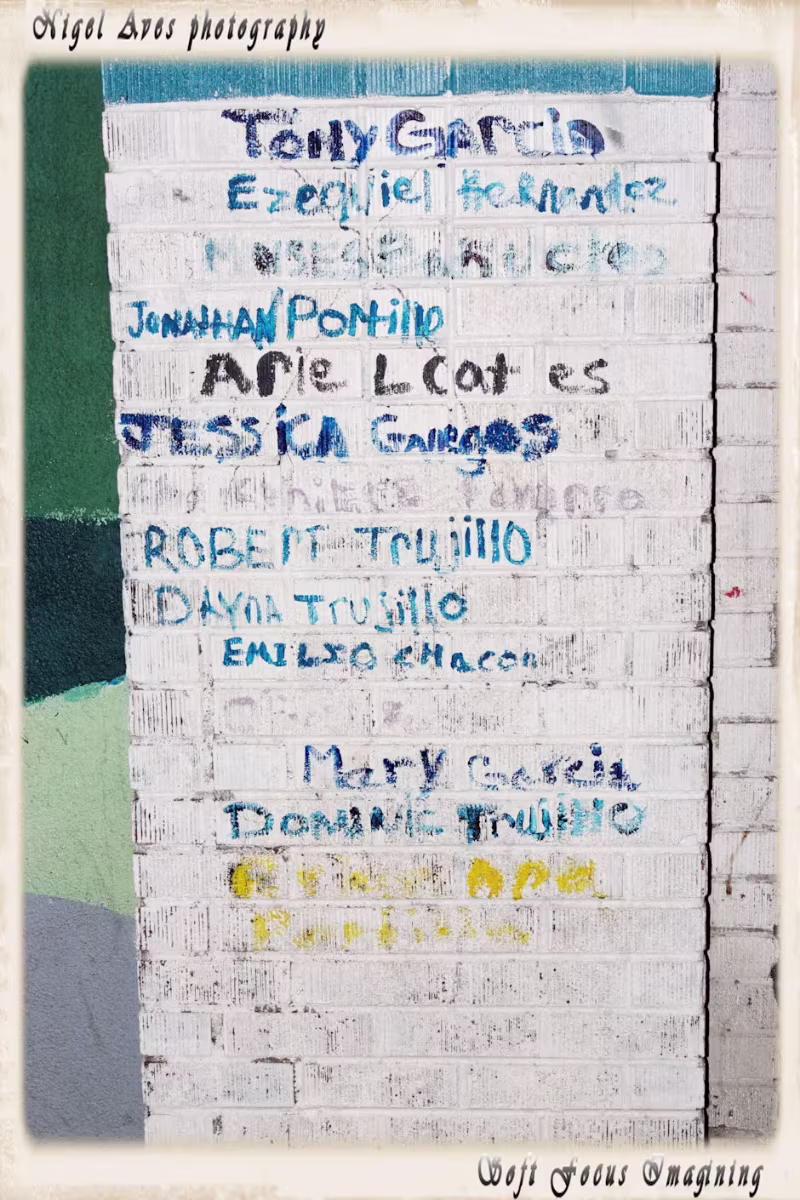 Nigel Aves photography
Tony Garcia
Ezequiel Hernandez
MOISES
JONATHAN Portillo
Arie L Coat es
JESSICA Gallegos
ROBERT Trujillo
DAYNA Trujillo
EMILIO cHacon
Mary Garcia
DOMINIC Trujillo
Soft Focus Imagining